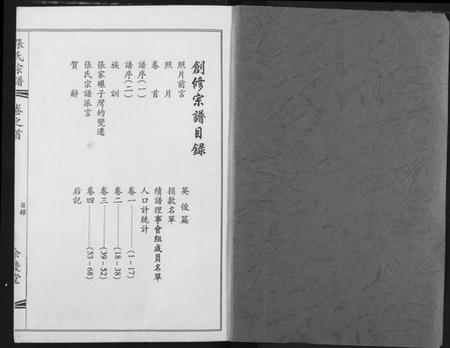 創修宗譜目錄
照片前言
照片
卷首
譜序(一)
譜序(二)
族訓
張家碾子灣的變遷
張氏宗譜派言
賀辭
英俊篇
捐款名單
續譜理事會組成員名單
人口計統計
卷一………(1-17)
卷二………(18-38)
卷三………(39-52)
卷四………(53-68)
后記
張氏宗譜
卷之首
目錄
余慶堂